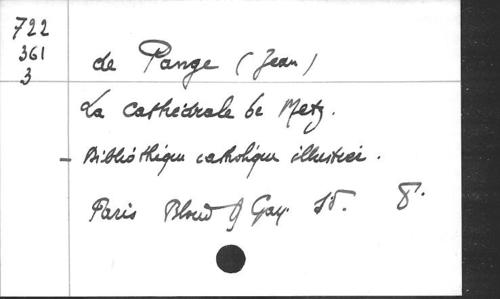 722
361
3
de Pange (Jean)
La cathédrale de Metz.
- Bibliothèque catholique illustrée.
Paris Bloud & Gay. SD. 8.